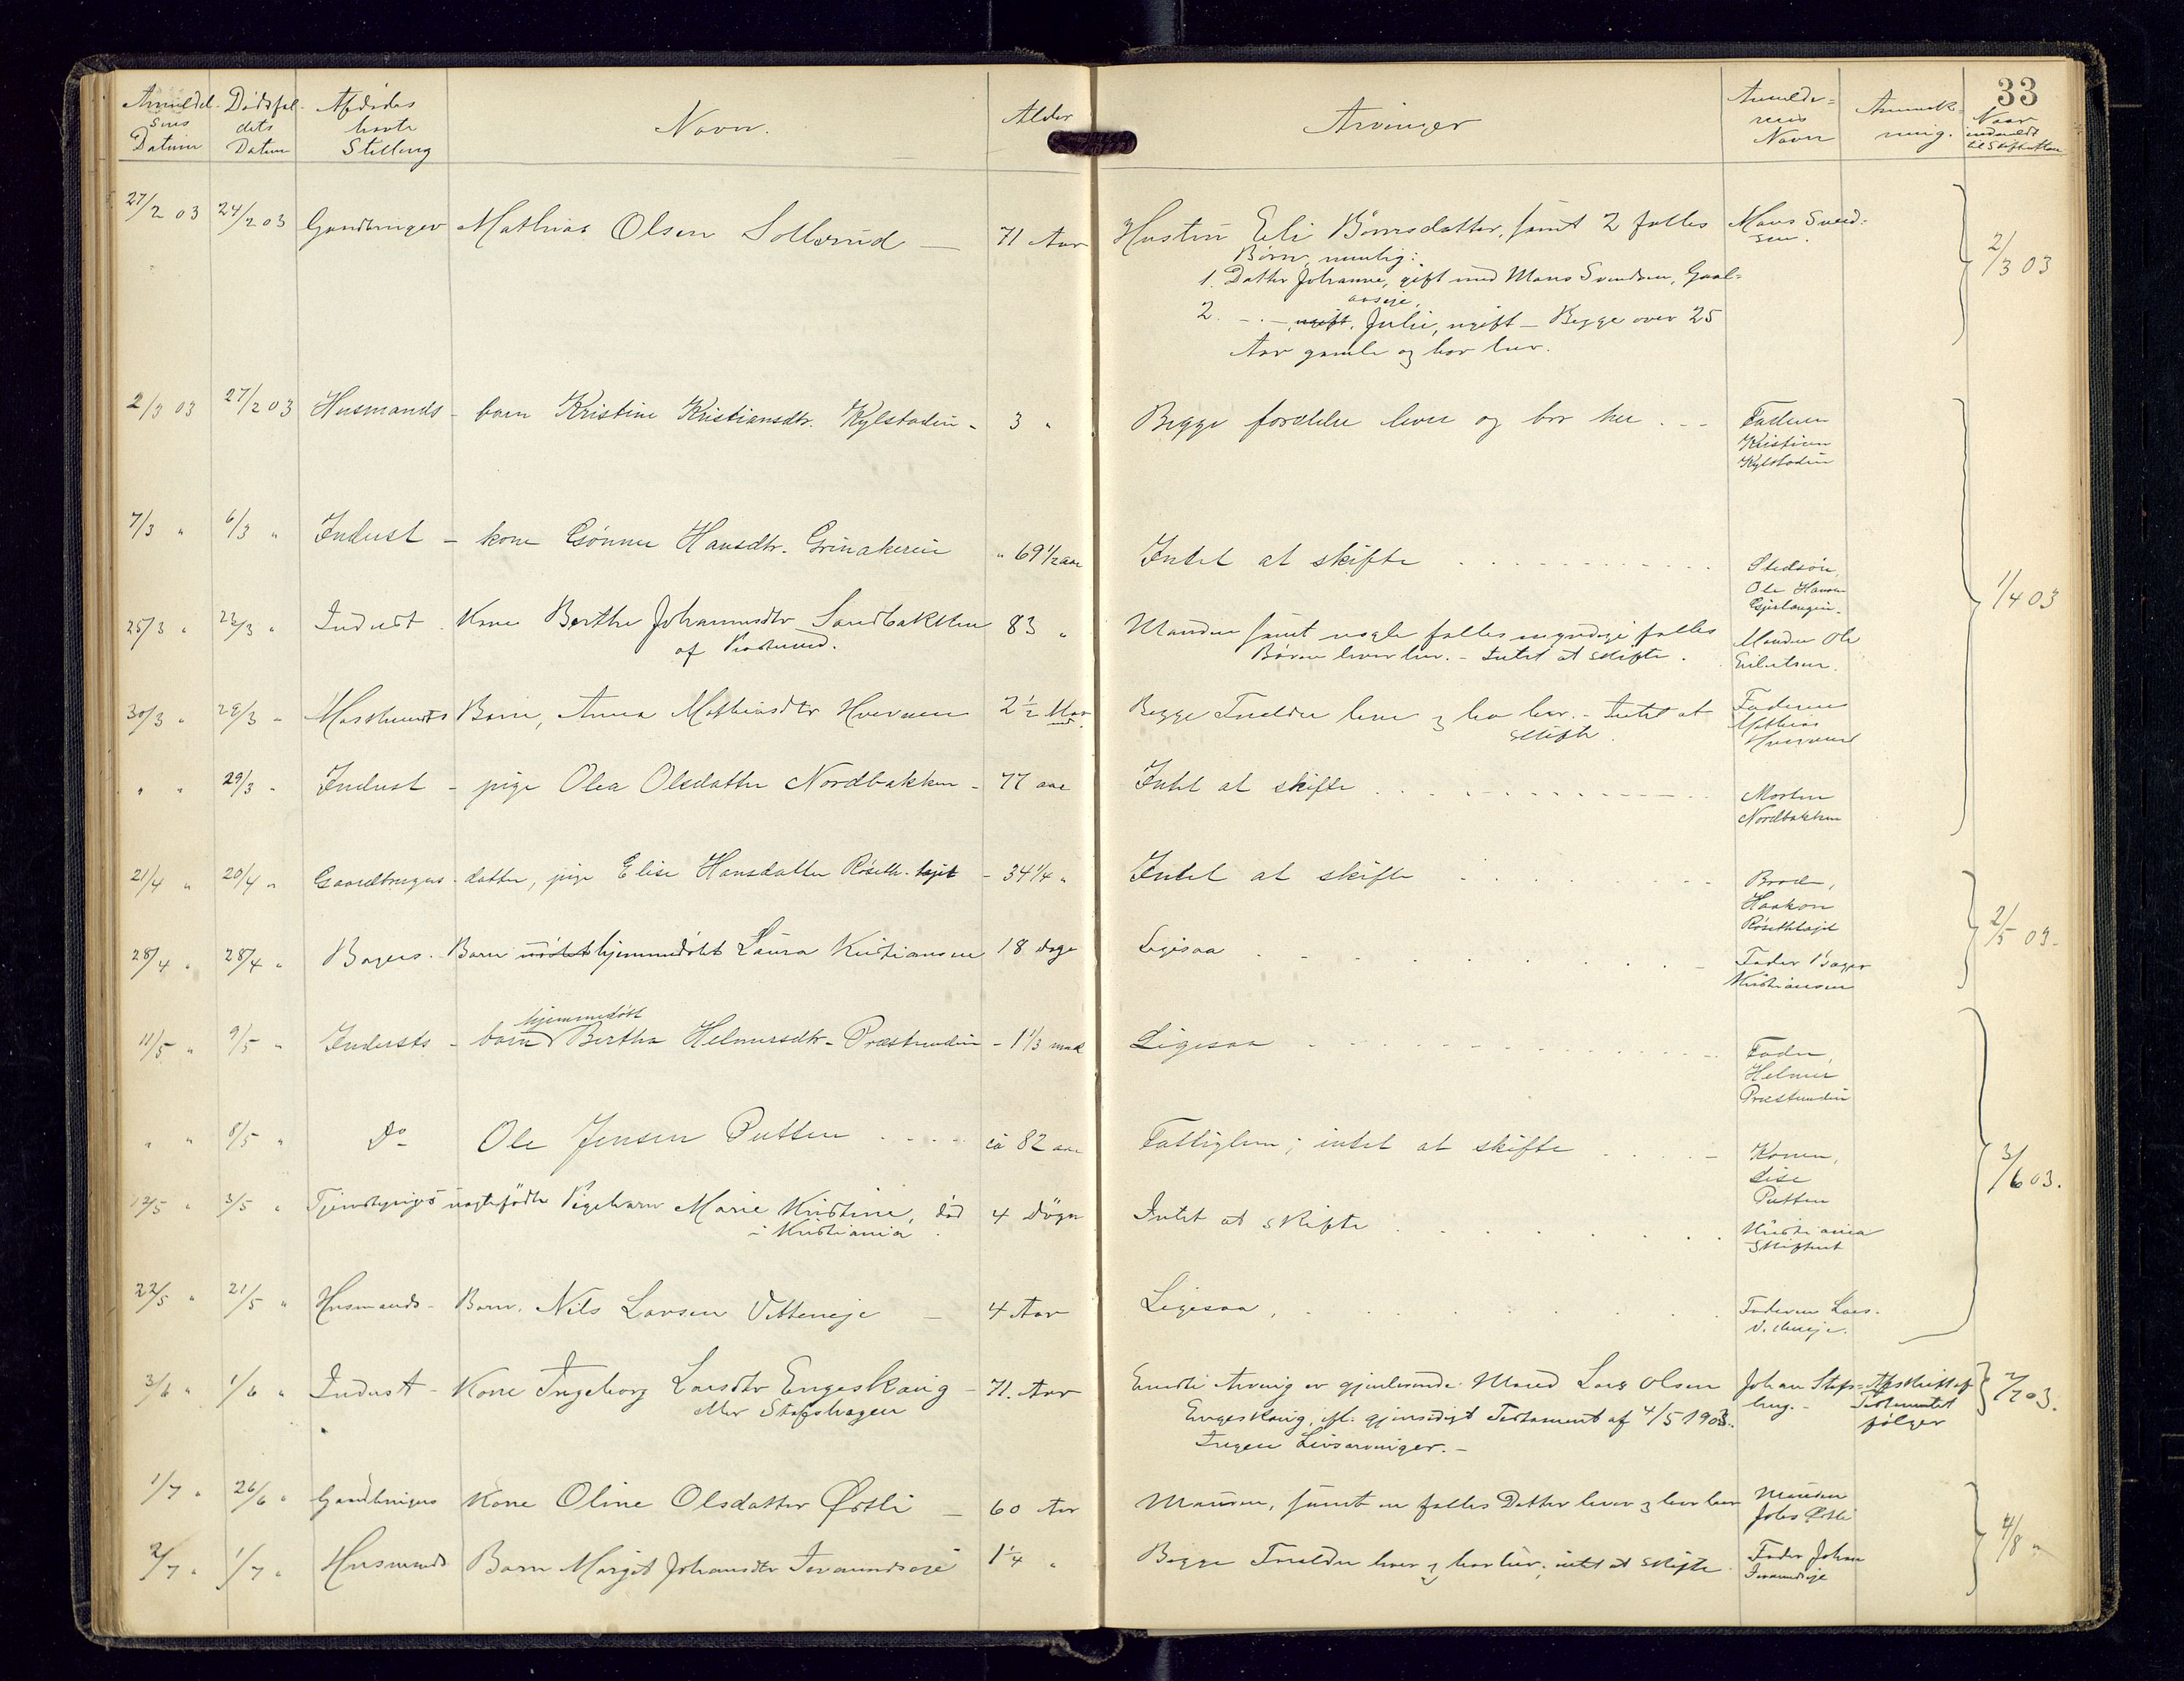 33
Anmeldel-
sens
Datum
Dødsfal-
dets
Datum
Afdødes
havte
Stilling
Navn.
Alder
Arvinger
Anmelde-
rens
Navn
Anmærk-
ning.
Naar
indmeldt
til Skifteretten
27/2 03 24/2 03 Gaardbruger Mathias Olsen Sollerud — 71 Aar Hustru Eli Børresdatter, samt 2 fælles Mons Svend-
Børn, nemlig: sen.
1. Datter Johanne, gift med Mons Svendsen, Gaal-
aaseje,
2. — . — ugift, Julie, ugift — Begge over 25
Aar gamle og bor her.
2/3 03
2/3 03 27/2 03 Husmands - barn Kristine Kristiansdtr. Kylstadin - 3 " Begge forældre lever og bor her . - - Faderen
Kristian
Kylstadin
7/3 " 6/3 " Inderst - kone Gønner Hansdtr. Grinakerein " 69 1/2 aar Intet at skifte . . . Stedsøn,
Ole Hansen
1/4 03
25/3 " 23/3 " Inderst . Kone Berthe Johannesdtr Sandbakken 83 " Manden samt nogle fælles myndige fælles Manden Ole
af Børn lever her. - Intet at skifte.
30/3 " 28/3 " Barn, Anna Mathiasdtr Hvervnen 2 1/2 Maa- Begge Forældre lever og bor her. - Intet at Faderen
ned. skifte. Mathias
" " 29/3 " Inderst - pige Olea Olsdatter Nordbakken - 77 aar Intet at skifte . . . Morten
Nordbakken
21/4 " 20/4 " Gaardbrugers - datter, pige Elise Hansdatter Røseth-lajet - 34 1/4 " Intet at skifte . . . Broder,
Haakon
Røsethlajet
28/4 " 28/4 " Bagers . Barn hjemmedøbt Laura Kristiansen 18 dage Ligesaa . . . Fader Bager
Kristiansen
2/5 03.
hjemmedøbt
11/5 " 9/5 " Indersts - barn Bertha Helmersdtr - Præstrudin - 1 1/3 mnd Ligesaa . . . Fader,
Helmer
Præstrudin
" " 8/5 " Do Ole Jensen Putten . . . ca 82 aar Fattiglem; intet at skifte . . . Konen,
Lise
Putten
3/6 03.
12/5 " 3/5 " Tjenestepiges uægtefødte Pigebarn Marie Kristine, død 4 Døgn Intet at skifte . . . Kristiania
i Kristiania. Skifteret
22/5 " 21/5 " Husmands - Barn. Nils Larsen Vetteneje — 4 Aar Ligesaa, . . . Faderen Lars
3/6 " 1/6 " Inderst - Kone Ingeborg Larsdtr Engeskaug - 71 Aar Eneste Arving er gjenlevende Mand Lars Olsen Johan Stafs- Afskrift af
eller Stafshagen Engeskaug, ifl. gjensidigt Testament af 4/5 1903. Testamentet
Ingen Livsarvinger. — følger
2/7 03.
1/7 " 26/6 " Gaardbrugers Kone Oline Olsdatter Østli — 60 Aar Manden, samt en fælles Datter lever og bor her Manden
Johs Østli
2/7 " 1/7 " Husmands Barn Margit Johansdtr 1 1/4 " Begge Forældre lever og bor her; intet at skifte Fader Johan
4/8 "